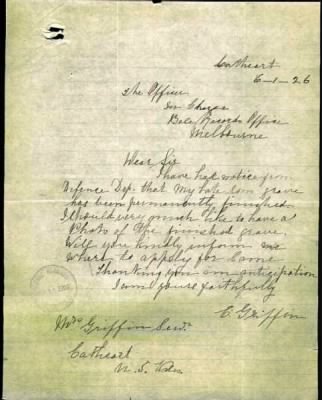 Cathcart
6-1-26
The Officer
In Charge
Base Records Office
Melbourne
Dear Sir
I have had notice from
Defence Dep. that my late son grave
has been permanently finished.
I should very much like to have a
Photo of the finished grave.
Will you kindly inform me
where to apply for same
Thanking you in anticipation
I am yours faithfully
C Griffin
Mrs Griffin Senr
Cathcart
N. S. Wales